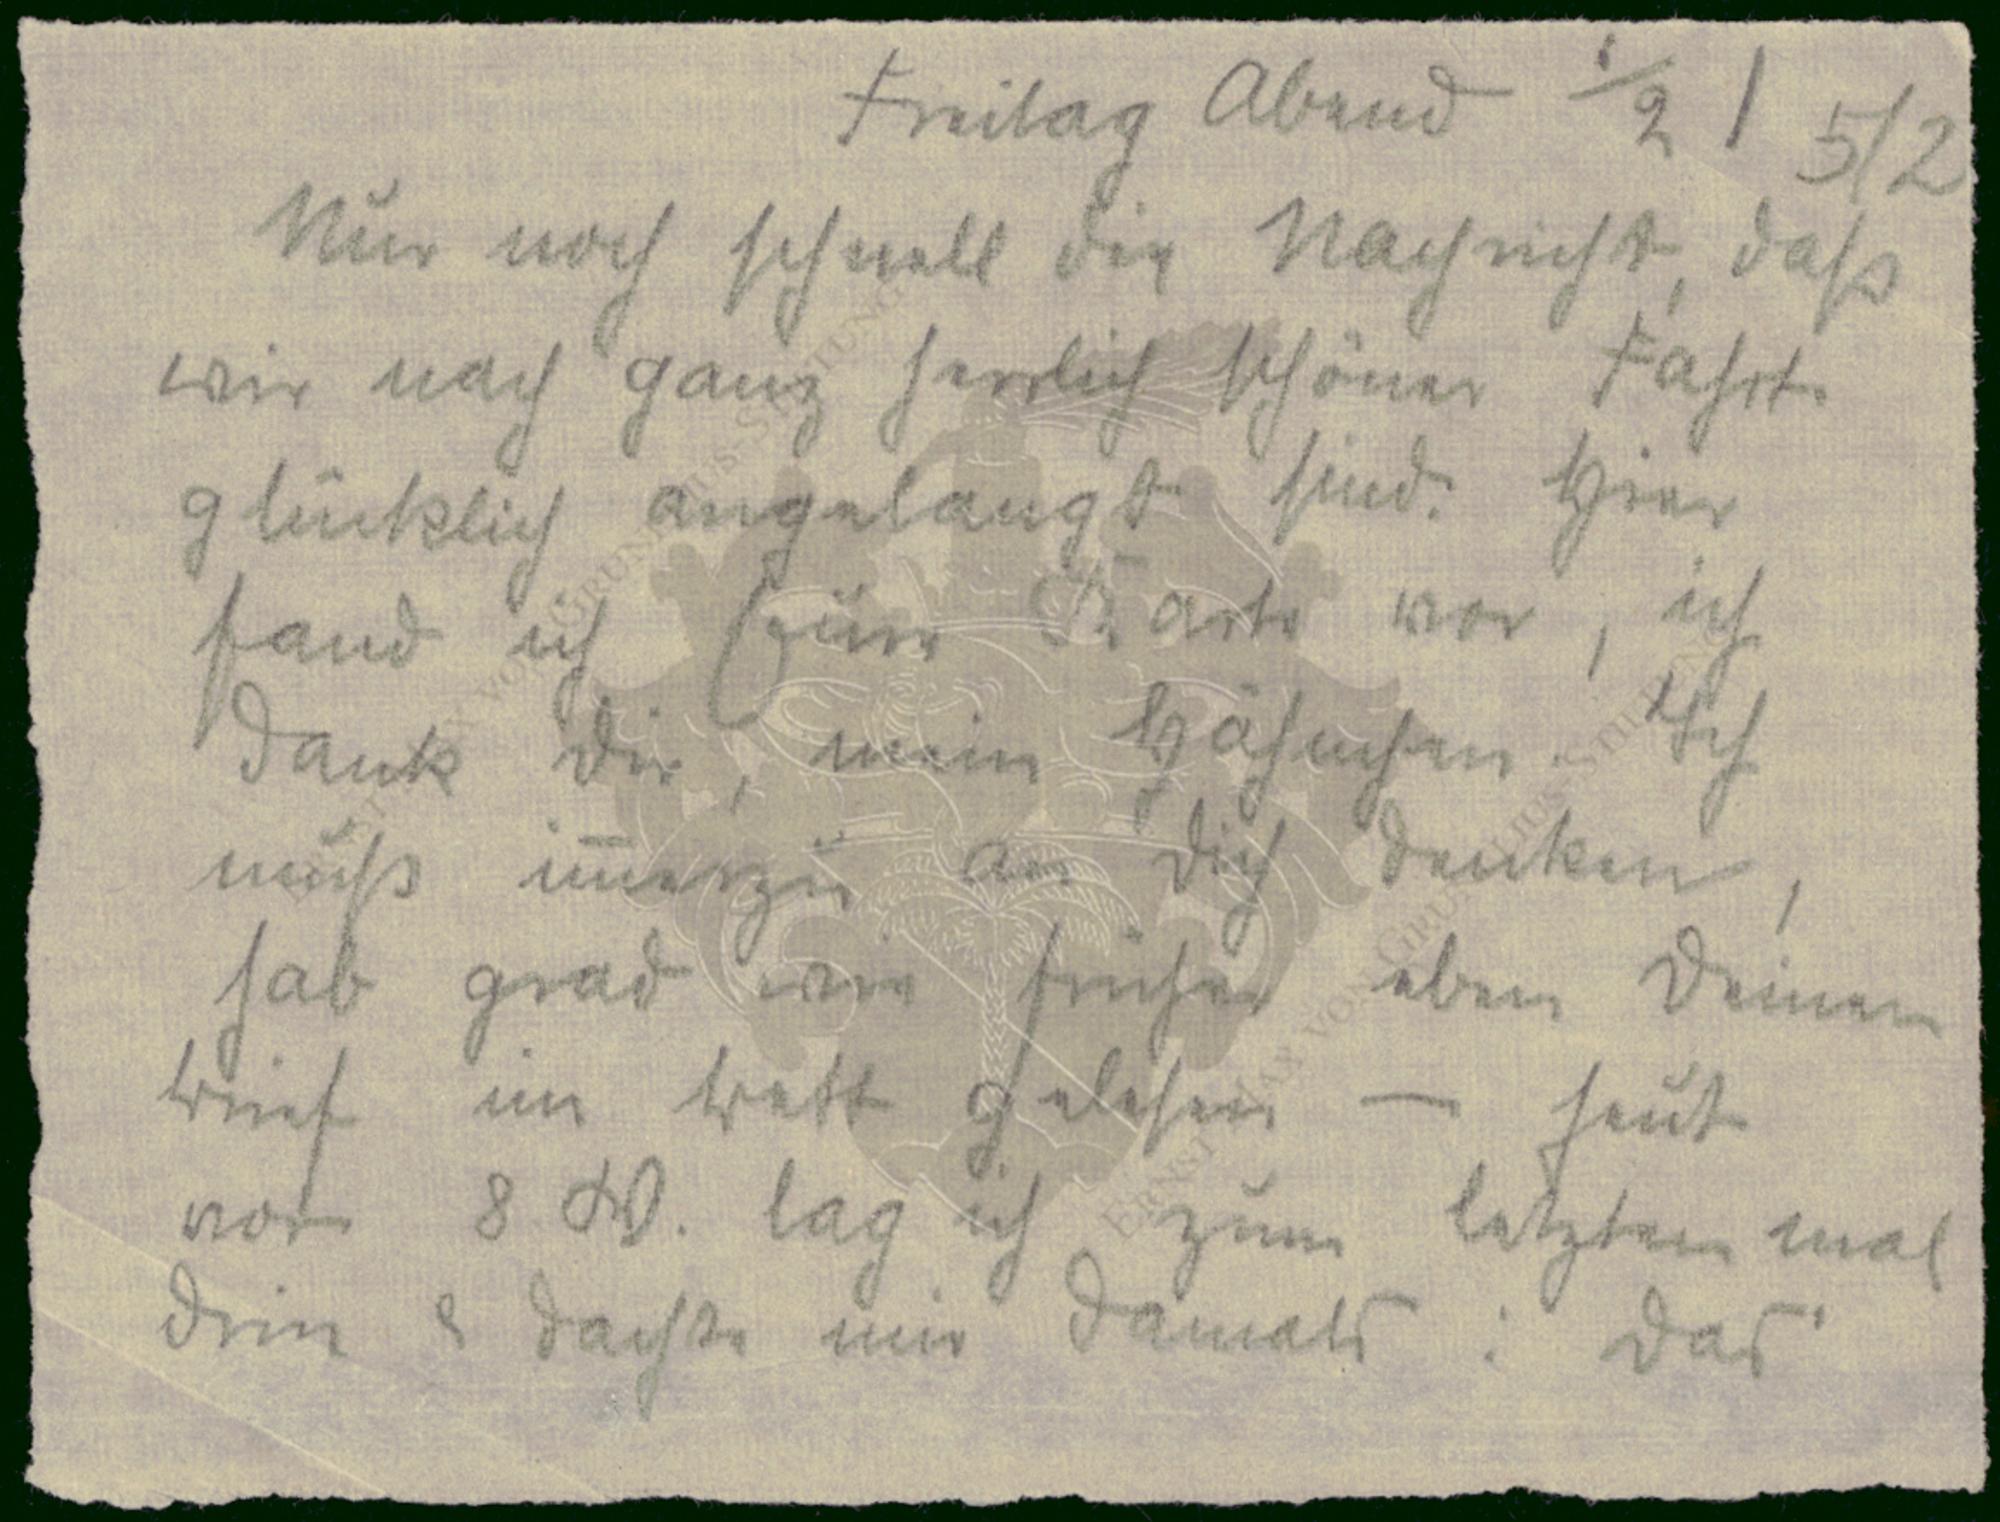 Freitag Abend 1/2 1 5/2
Nur noch schnell die Nachricht, daß
wir nach ganz herrlich schöner Fahrt
glücklich angelangt sind. Hier
fand ich Eure Karte vor, ich
dank Dir, mein Hähnchen. Ich
muß im̅erzu an Dich denken,
hab grad wie früher eben Deinen
Brief im Bett gelesen — heut
vor 8 W. lag ich zum letzten mal
drin & dachte mir damals: das
ERNST MAX VON GRUNELIUS-STIFTUNG
ERNST MAX VON GRUNELIUS-STIFTUNG